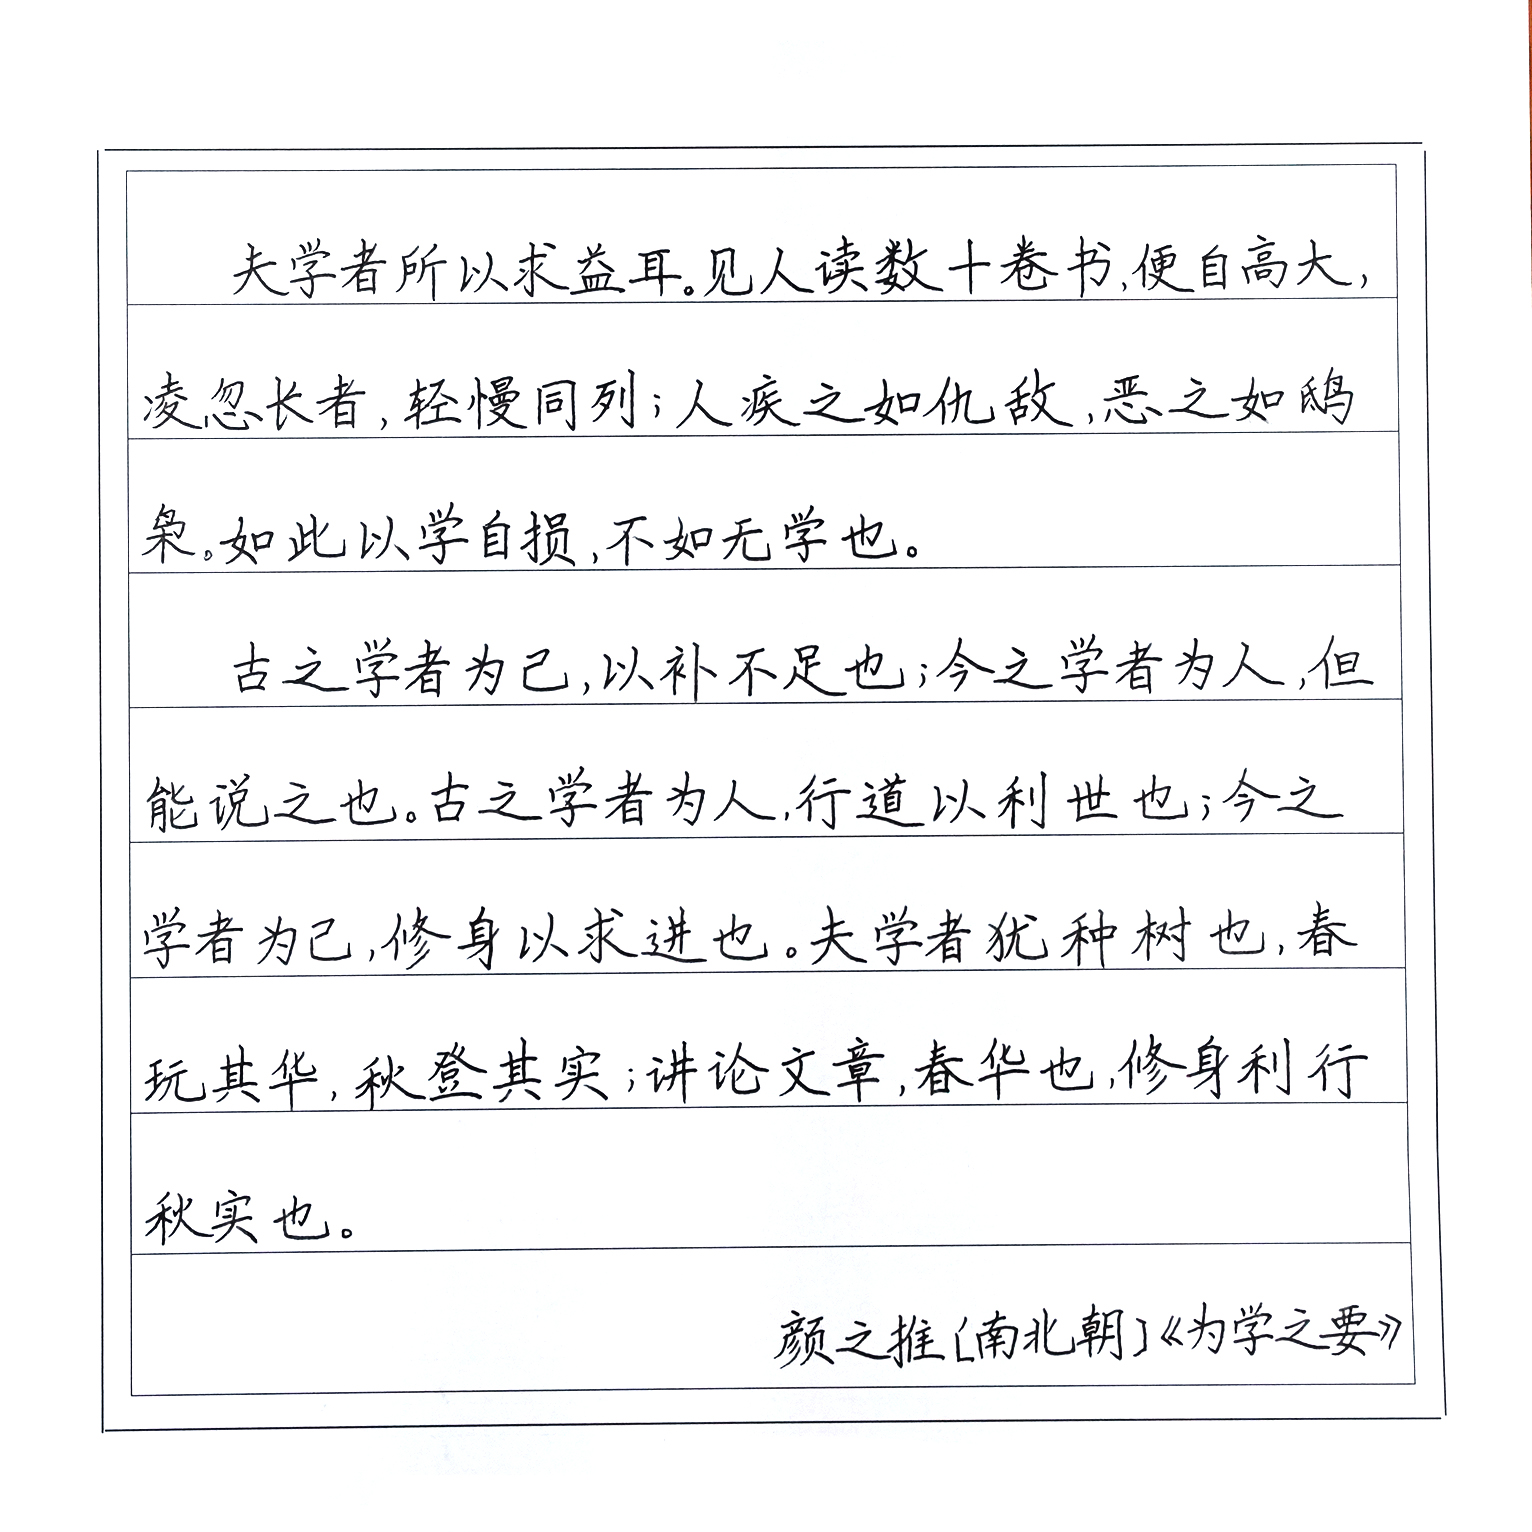 夫学者所以求益耳。见人读数十卷书,便自高大,
凌忽长者,轻慢同列;人疾之如仇敌,恶之如鸱
枭。如此以学自损,不如无学也。
古之学者为己,以补不足也;今之学者为人,但
能说之也。古之学者为人,行道以利世也;今之
学者为己,修身以求进也。夫学者犹种树也,春
玩其华,秋登其实;讲论文章,春华也,修身利行
秋实也。
颜之推〔南北朝〕《为学之要》